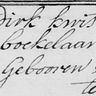 Dirk kris
boekelaar
Gebooren
te